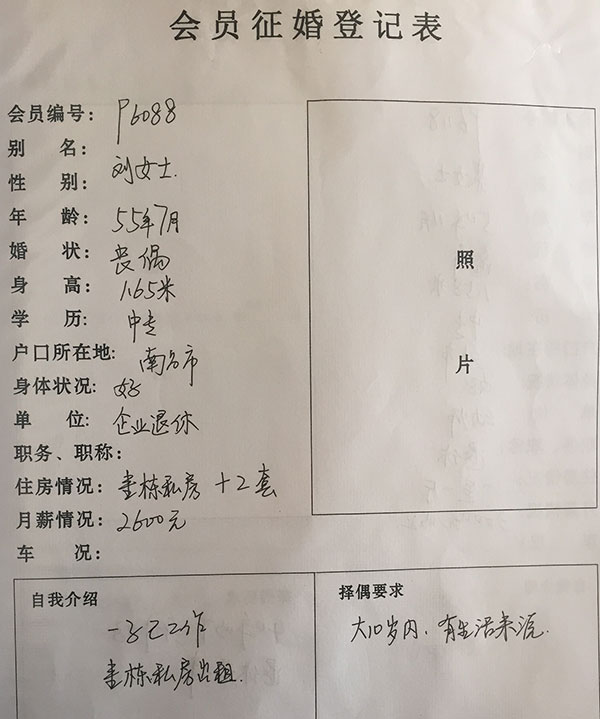 会员征婚登记表
会员编号: P6088
别 名:
性 别: 刘女士.
年 龄: 55年7月
婚 状: 丧偶
身 高: 1.65米
学 历: 中专
户口所在地: 南昌市
身体状况: 好
单 位: 企业退休
职务、职称:
住房情况: 壹栋私房 +2套
月薪情况: 2600元
车 况:
照
片
自我介绍
一子已工作
壹栋私房出租.
择偶要求
大10岁内、有生活来源.